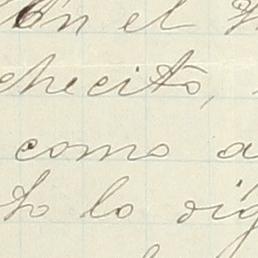 en el
checito,
como a
to lo dig